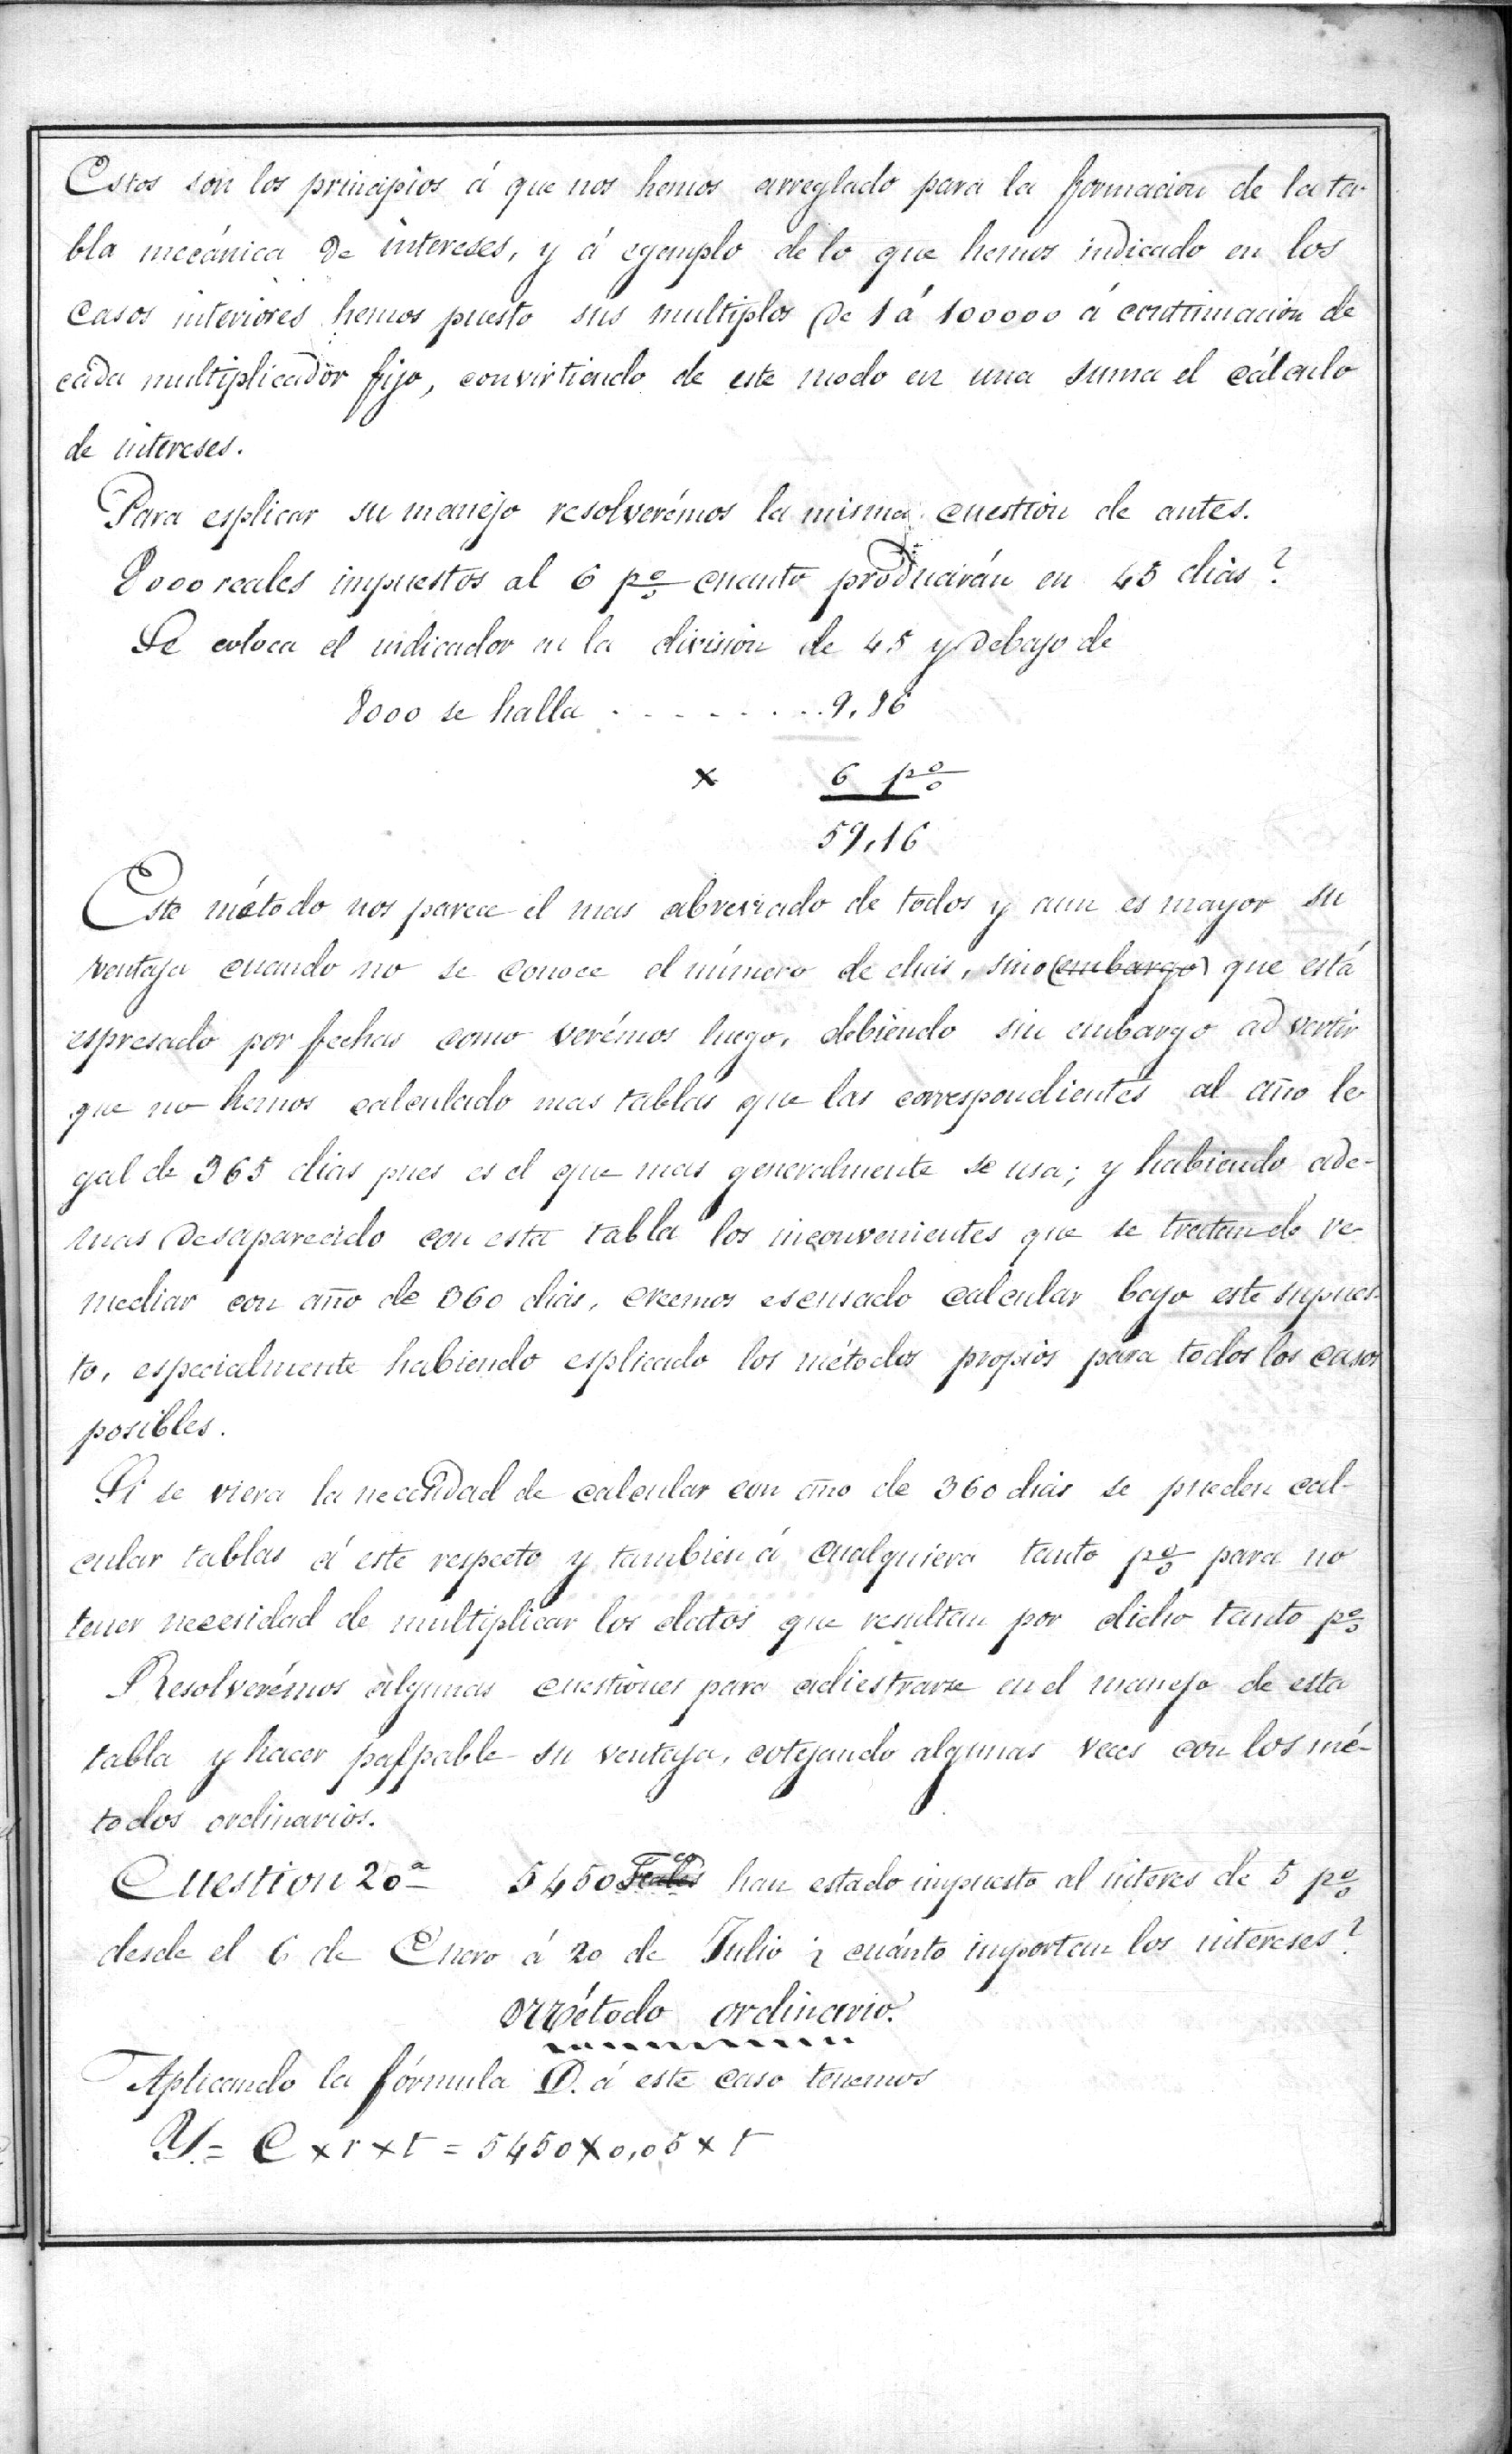 Estos son los principios á que nos hemos arreglado para la formacion de la ta-
bla mecánica de intereses, y á egemplo de lo que hemos indicado en los
casos interiores hemos puesto sus multiplos de 1 á 100000 á continuacion de
cada multiplicador fijo, convirtiendo de este modo en una suma el cálculo
de intereses.
Para esplicar su manejo resolverémos la misma cuestion de antes.
8000 reales impuestos al 6 p% cuanto producirán en 45 dias?
Se coloca el indicador en la division de 45 y debajo de
8000 se halla . . . . . . . . 9,86
× 6 p%
59,16
Este método nos parece el mas abreviado de todos y aun es mayor su
ventaja cuando no se conoce el número de dias, sino (embargo) que está
espresado por fechas como verémos luego, debiendo sin embargo advertir
que no hemos calculado mas tablas que las correspondientes al año le
gal de 365 dias pues es el que mas generalmente se usa; y habiendo ade-
mas desaparecido con esta tabla los inconvenientes que se tratan de re-
mediar con año de 360 dias, creemos escusado calcular bajo este supues-
to, especialmente habiendo esplicado los métodos propios para todos los casos
posibles.
Si se viera la necesidad de calcular con año de 360 dias se pueden cal-
cular tablas á este respecto y tambien á cualquiera tanto p% para no
tener necesidad de multiplicar los datos que resultan por dicho tanto p%
Resolverémos algunas cuestiones para adiestrarse en el manejo de esta
tabla y hacer palpable su ventaja, cotejando algunas veces con los mé-
todos ordinarios.
Cuestion 20ª 5450 reales han estado impuesto al interes de 5 p%
desde el 6 de Enero á 20 de Julio ¿ cuánto importan los intereses?
Método ordinario.
Aplicando la fórmula D. á este caso tenemos
Y. = C × r × t = 5450 × 0,05 × t